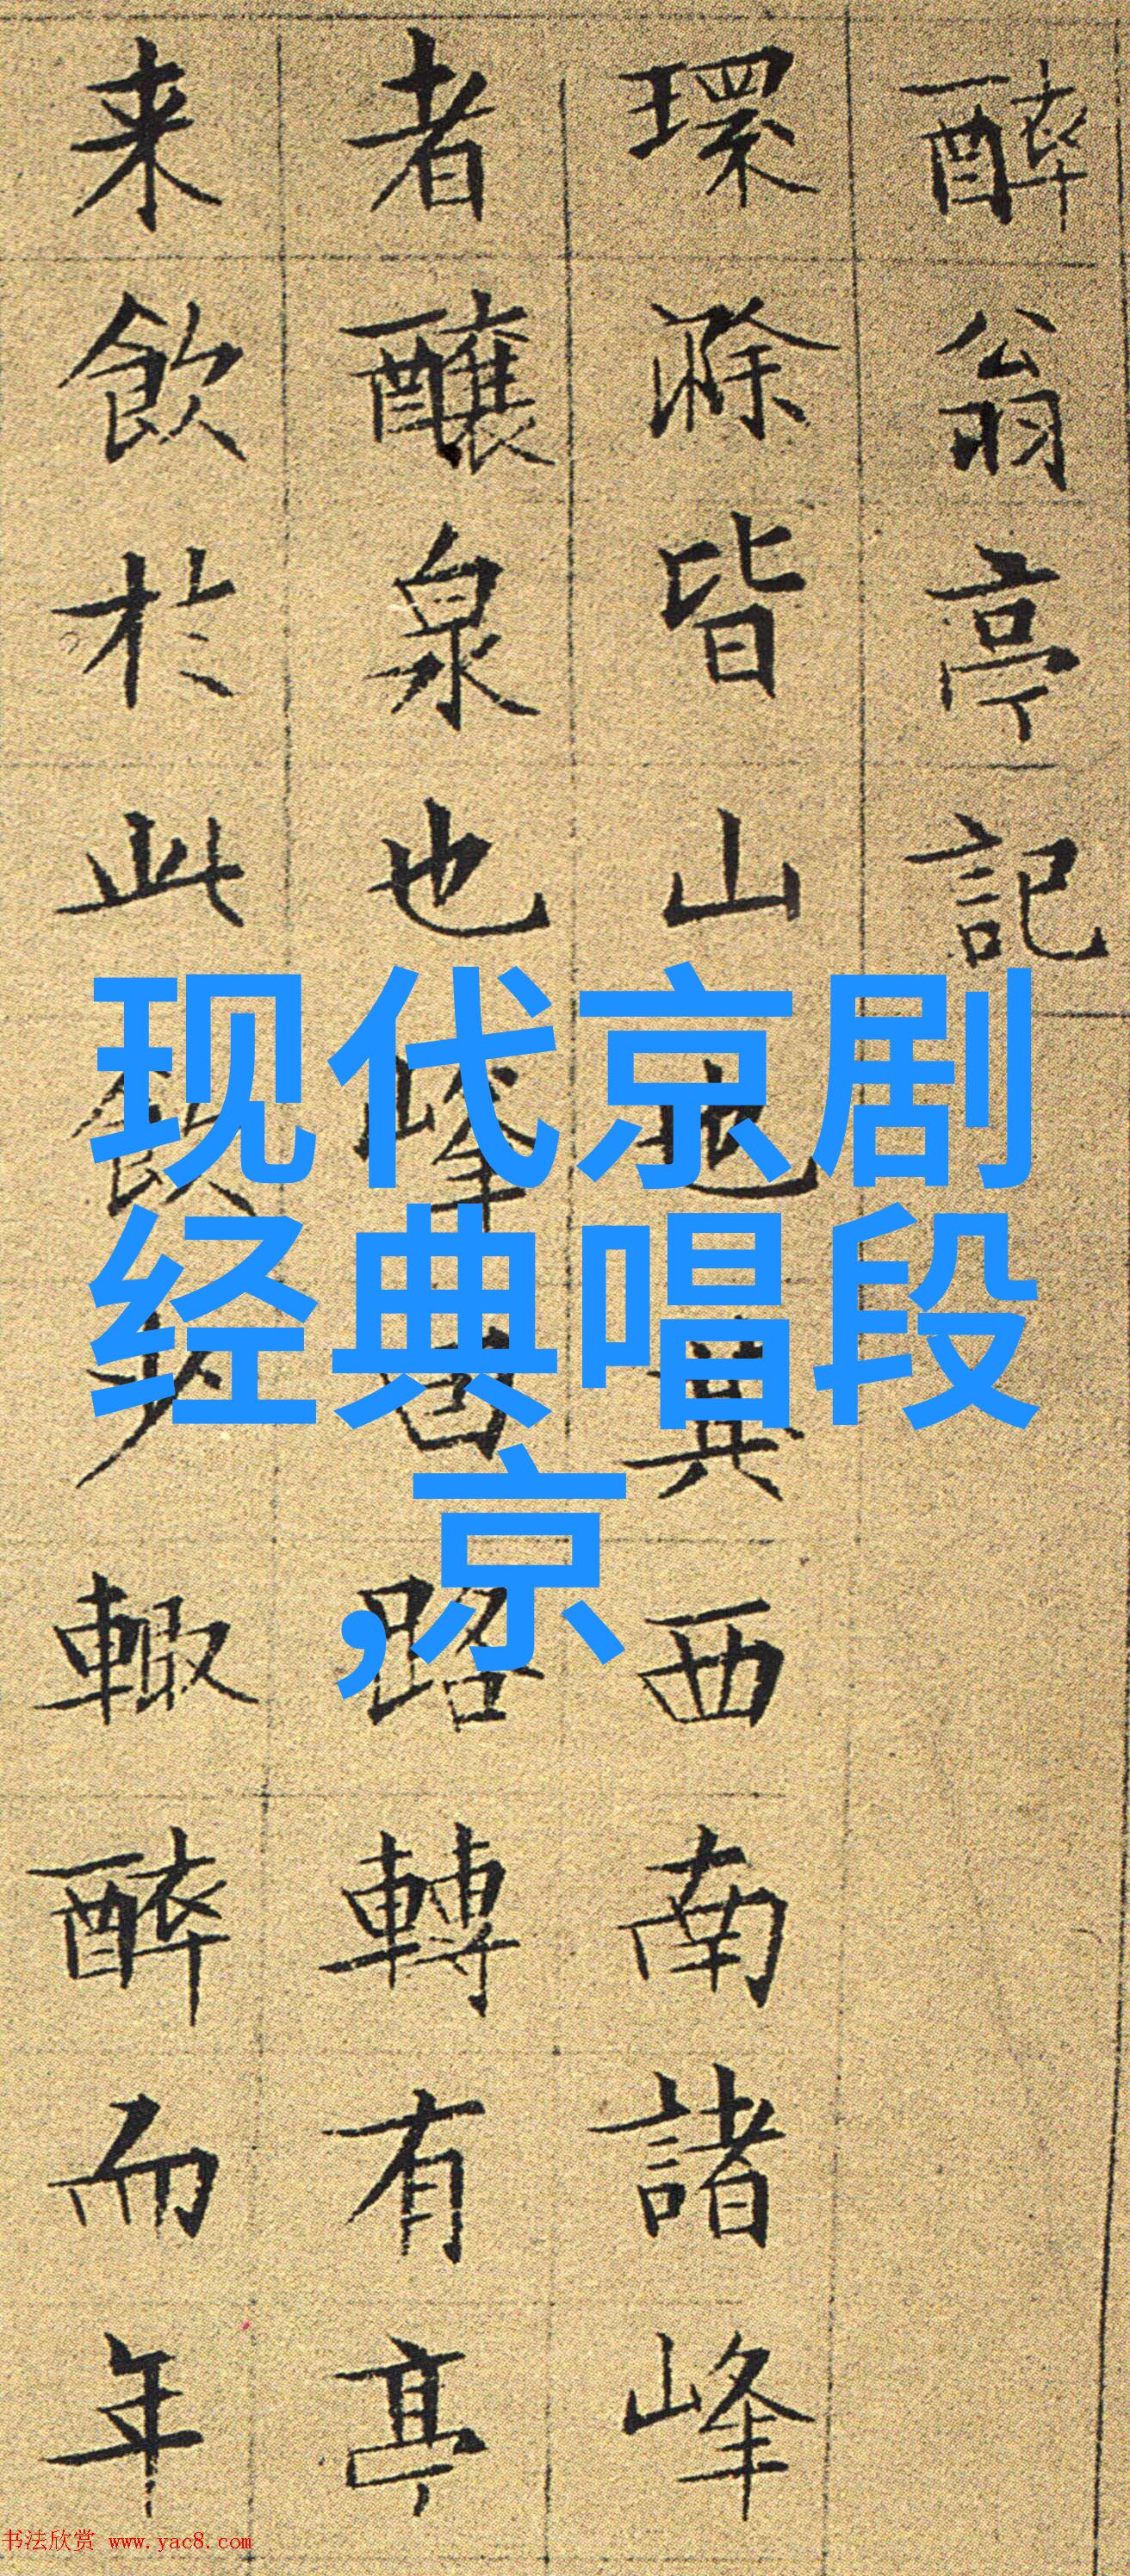 醉翁亭記
環滁皆山也其西南諸峰
者釀泉也峰回路轉有亭
来飲於此飲少輒醉而年
现代京剧
经典唱段
,京
书法欣赏 www.yac8.com